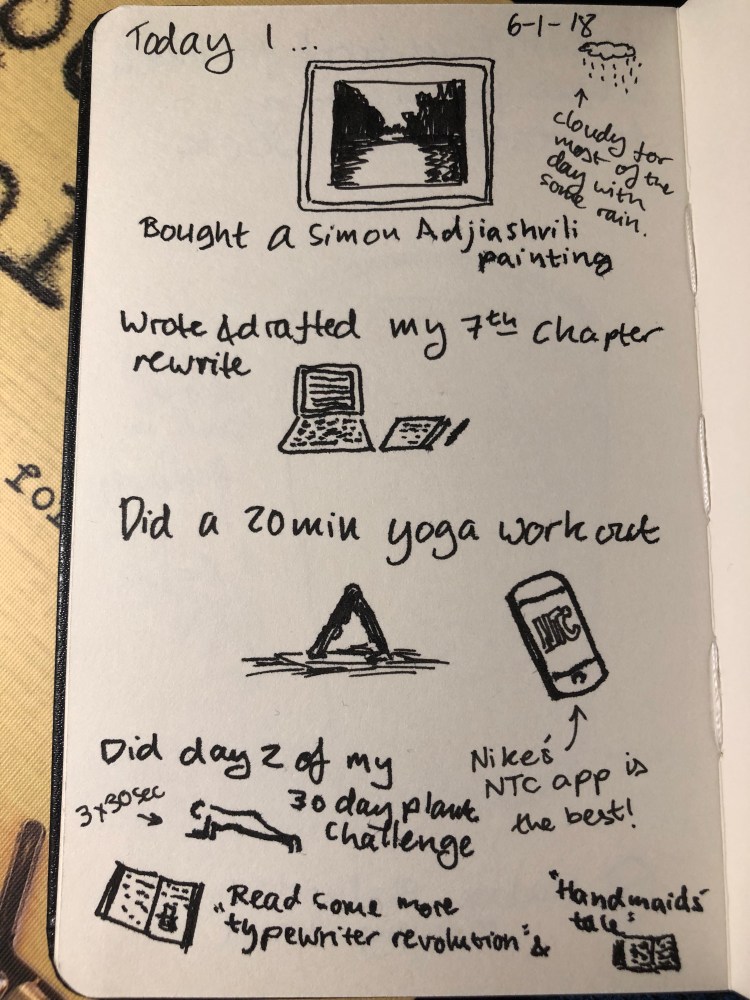 Today I...
6-1-18
cloudy for
most of the
day with
some rain.
Bought a Simon Adjiashvili
painting
Wrote & drafted my 7th chapter
rewrite
Did a 20min yoga workout
NTC
Nike's
NTC app is
the best!
Did day 2 of my
30 day plank
challenge
3x30sec
„Read some more
typewriter revolution" &
"Handmaids'
tale"